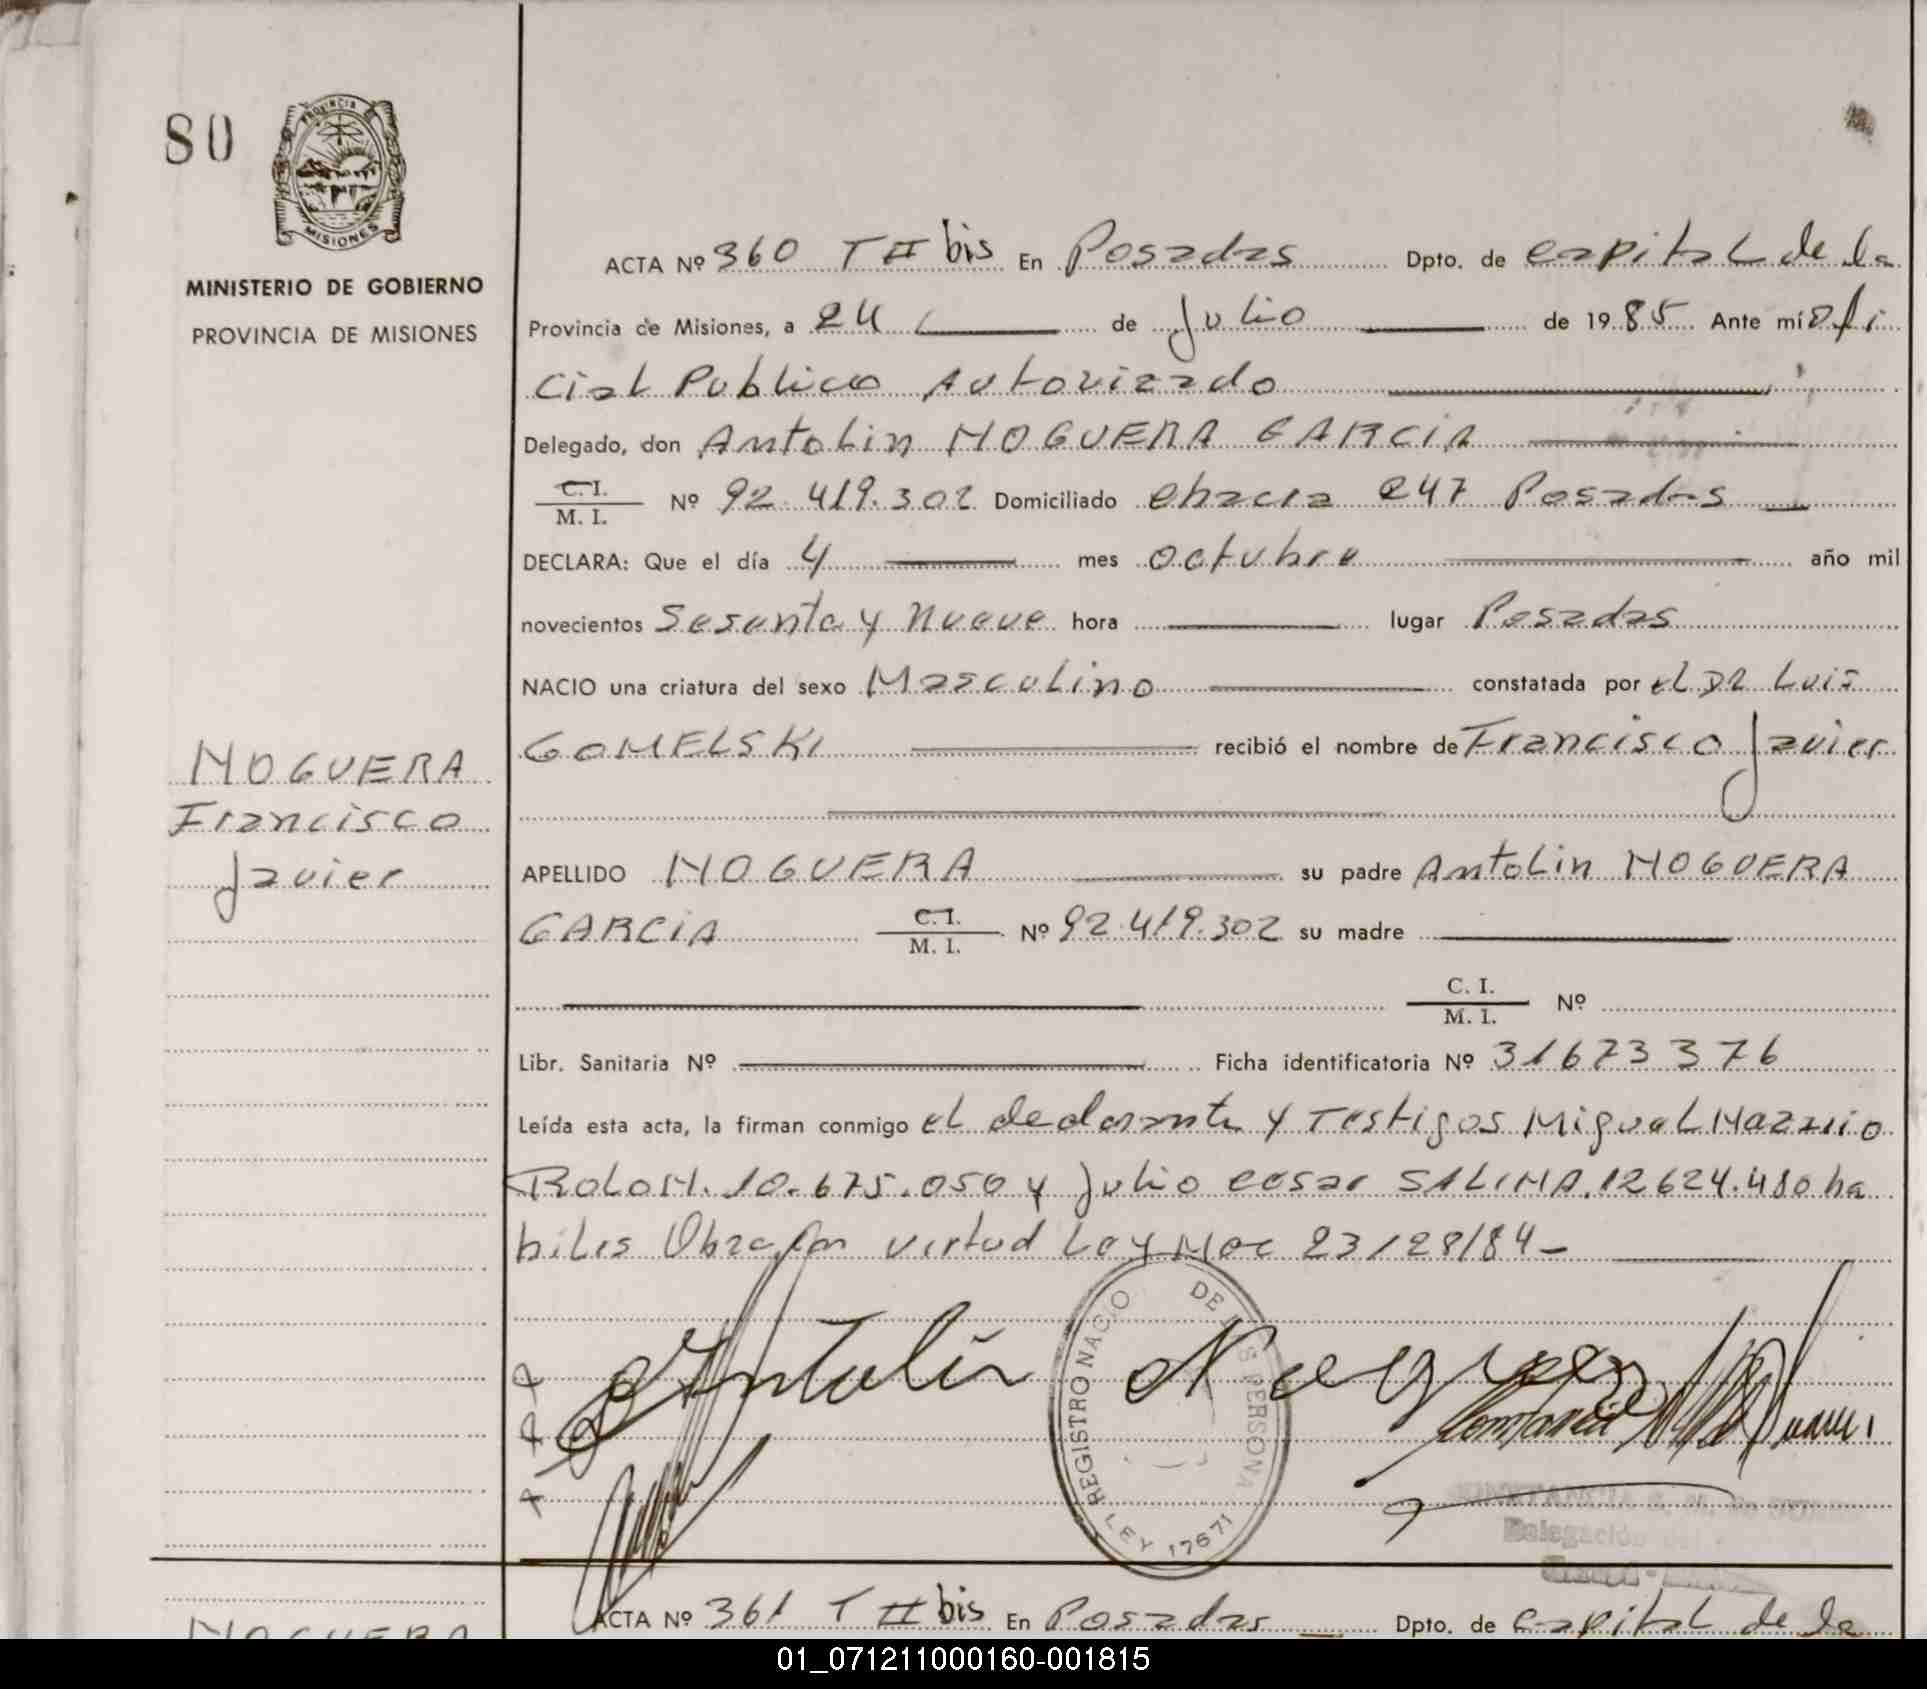 80
PROVINCIA
MISIONES
MINISTERIO DE GOBIERNO
PROVINCIA DE MISIONES
NOGUERA
Francisco
Javier
ACTA Nº 360 T II bis En Posadas Dpto. de capital de la
Provincia de Misiones, a 24 de Julio de 1985 Ante mí Ofi
cial Publico Autorizado
Delegado, don Antolin NOGUERA GARCIA
C. I. / M. I. Nº 92.419.302 Domiciliado chacra 247 Posadas
DECLARA: Que el día 4 mes octubre año mil
novecientos Sesenta y Nueve hora lugar Posadas
NACIO una criatura del sexo Masculino constatada por el DR Luis
GOMELSKI recibió el nombre de Francisco Javier
APELLIDO NOGUERA su padre Antolin NOGUERA
GARCIA C. I. / M. I. Nº 92.419.302 su madre
C. I. / M. I. Nº
Libr. Sanitaria Nº Ficha identificatoria Nº 31673376
Leída esta acta, la firman conmigo el declarante y Testigos Miguel
10.675.050 y Julio cesar SALINA. 12624.480 ha
biles Obra en virtud Ley Nac 23128/84
Antolin Noguera
REGISTRO NACIO DE PERSONA
LEY 17671
ACTA Nº 361 T II bis En Posadas Dpto. de capital de la
NOGUERA
01_071211000160-001815